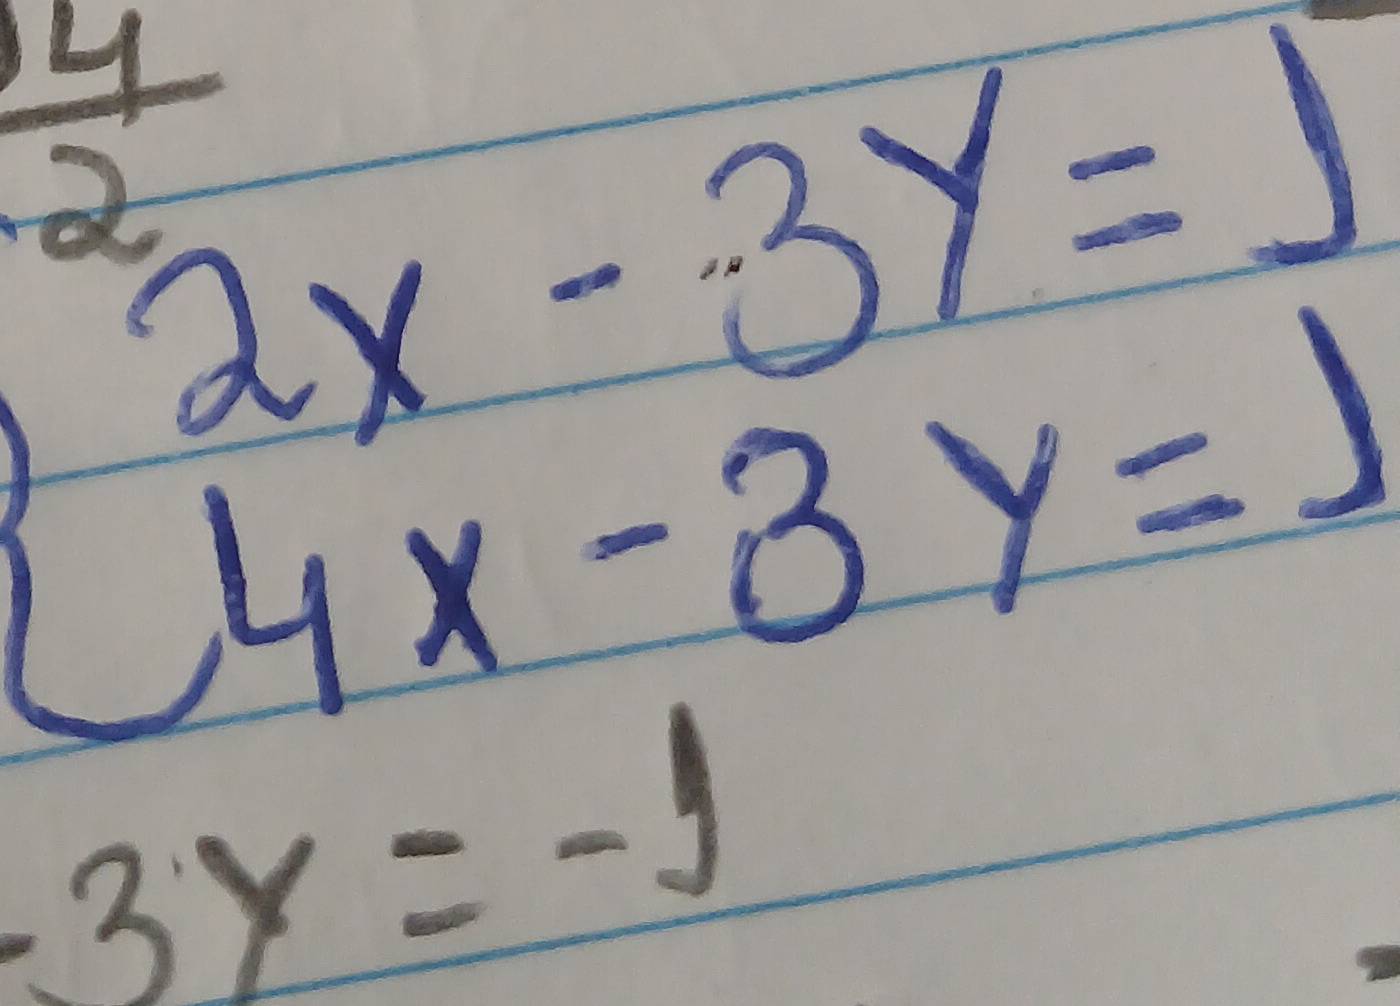 4
2
2x - 3y = 1
4x - 3y = 1
- 3y = - 1